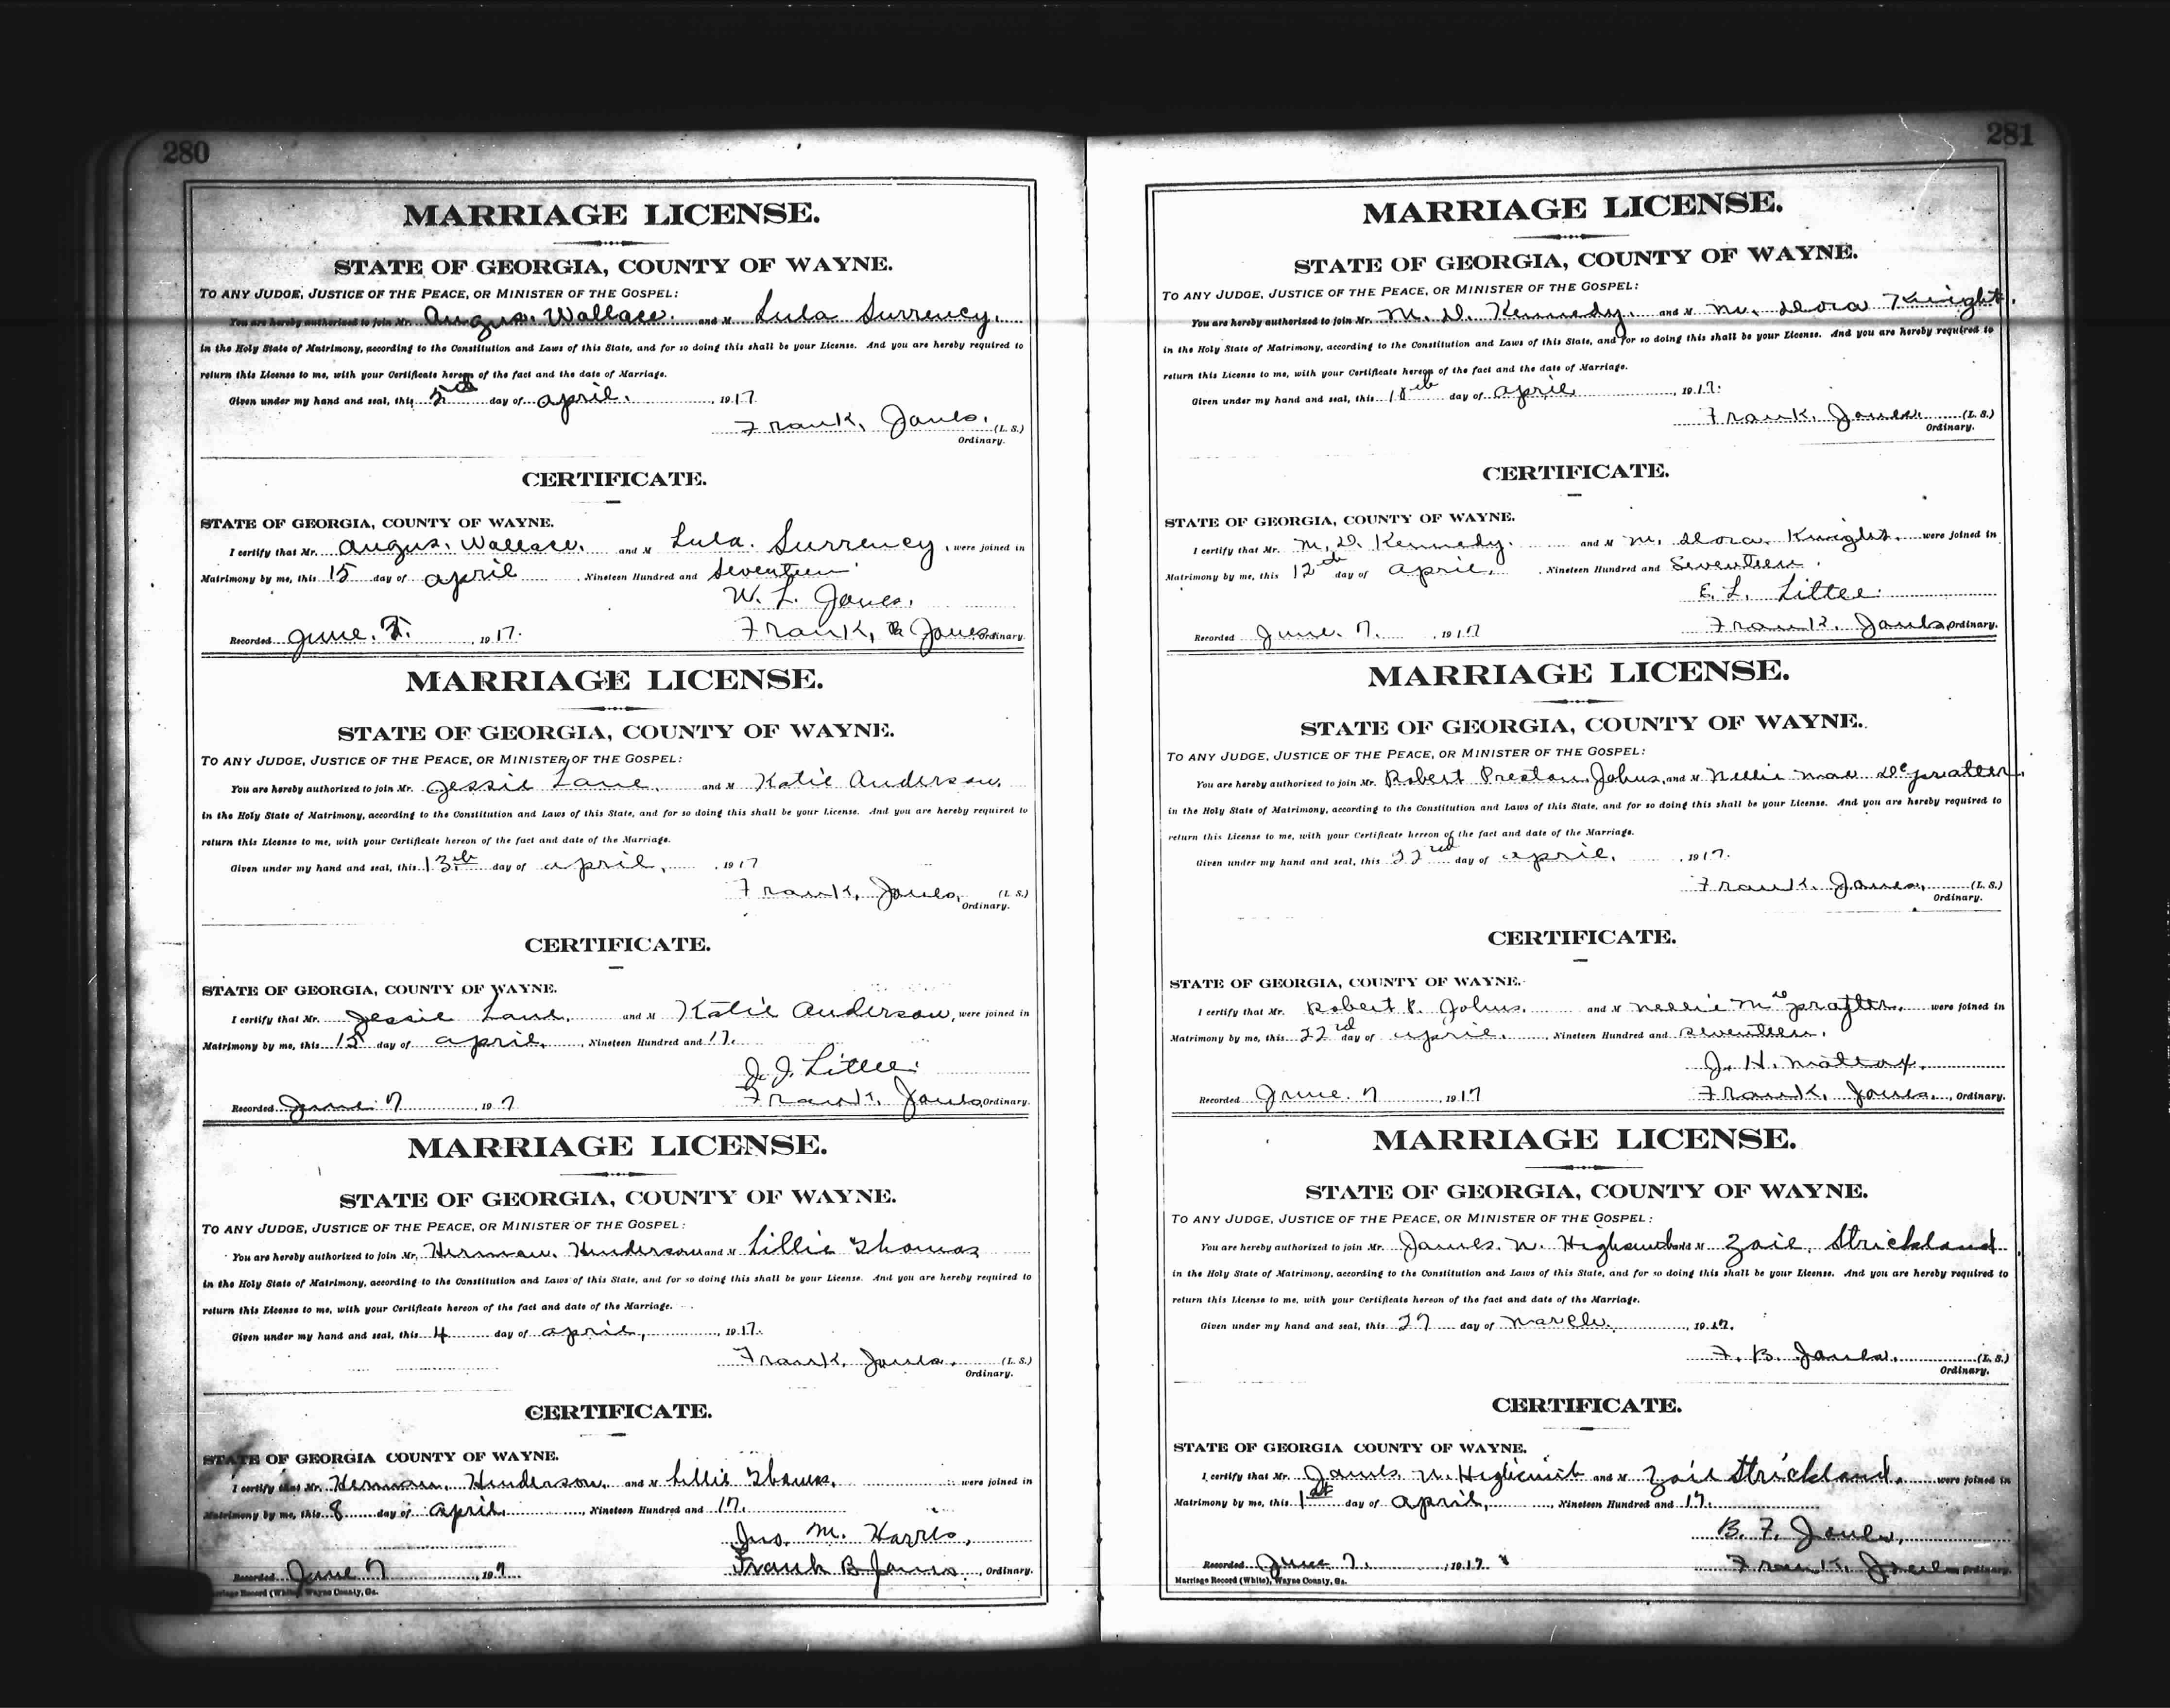 280
MARRIAGE LICENSE.
STATE OF GEORGIA, COUNTY OF WAYNE.
TO ANY JUDGE, JUSTICE OF THE PEACE, OR MINISTER OF THE GOSPEL:
You are hereby authorized to join Mr. Angus. Wallace. and M Lula Surrency.
in the Holy State of Matrimony, according to the Constitution and Laws of this State, and for so doing this shall be your License. And you are hereby required to
return this License to me, with your Certificate hereon of the fact and the date of Marriage.
Given under my hand and seal, this day of april. , 1917
Frank, Jones. (L. S.)
Ordinary.
CERTIFICATE.
STATE OF GEORGIA, COUNTY OF WAYNE.
I certify that Mr. Angus. Wallace. and M Lula. Surrency , were joined in
Matrimony by me, this 15 day of april , Nineteen Hundred and Seventeen.
W. L. Jones.
Recorded June. 7. , 1917. Frank, Jones Ordinary.
MARRIAGE LICENSE.
STATE OF GEORGIA, COUNTY OF WAYNE.
TO ANY JUDGE, JUSTICE OF THE PEACE, OR MINISTER OF THE GOSPEL:
You are hereby authorized to join Mr. Jessie Lane. and M Katie Anderson.
in the Holy State of Matrimony, according to the Constitution and Laws of this State, and for so doing this shall be your License. And you are hereby required to
return this License to me, with your Certificate hereon of the fact and date of the Marriage.
Given under my hand and seal, this 13th day of april, , 1917
Frank, Jones, (L. S.)
Ordinary.
CERTIFICATE.
STATE OF GEORGIA, COUNTY OF WAYNE.
I certify that Mr. Jessie Lane. and M Katie Anderson, were joined in
Matrimony by me, this 15 day of april, , Nineteen Hundred and 17.
J. J. Littee.
Recorded June 7 , 197 Frank. Jones, Ordinary.
MARRIAGE LICENSE.
STATE OF GEORGIA, COUNTY OF WAYNE.
TO ANY JUDGE, JUSTICE OF THE PEACE, OR MINISTER OF THE GOSPEL:
You are hereby authorized to join Mr. Herman. Henderson and M Lillie Thomas
in the Holy State of Matrimony, according to the Constitution and Laws of this State, and for so doing this shall be your License. And you are hereby required to
return this License to me, with your Certificate hereon of the fact and date of the Marriage.
Given under my hand and seal, this 4 day of april, , 1917.
Frank. Jones. (L. S.)
Ordinary.
CERTIFICATE.
STATE OF GEORGIA COUNTY OF WAYNE.
I certify that Mr. Herman. Henderson. and M Lillie Thomas. were joined in
Matrimony by me, this 8 day of april , Nineteen Hundred and 17.
Jno. M. Harris,
Recorded June 7 , 197 Frank B Jones , Ordinary.
Marriage Record (White), Wayne County, Ga.
281
MARRIAGE LICENSE.
STATE OF GEORGIA, COUNTY OF WAYNE.
TO ANY JUDGE, JUSTICE OF THE PEACE, OR MINISTER OF THE GOSPEL:
You are hereby authorized to join Mr. M. D. Kennedy. and M M. Dora Knight.
in the Holy State of Matrimony, according to the Constitution and Laws of this State, and for so doing this shall be your License. And you are hereby required to
return this License to me, with your Certificate hereon of the fact and date of the Marriage.
Given under my hand and seal, this day of april , 1917.
Frank. Jones. (L. S.)
Ordinary.
CERTIFICATE.
STATE OF GEORGIA, COUNTY OF WAYNE.
I certify that Mr. M. D. Kennedy. and M M. Dora. Knight. were joined in
Matrimony by me, this 12th day of april. , Nineteen Hundred and Seventeen.
E. L. Littee.
Recorded June. 7. , 1917 Frank. Jones, Ordinary.
MARRIAGE LICENSE.
STATE OF GEORGIA, COUNTY OF WAYNE.
TO ANY JUDGE, JUSTICE OF THE PEACE, OR MINISTER OF THE GOSPEL:
You are hereby authorized to join Mr. Robert Preston Johns, and M Nellie Mae Depratter.
in the Holy State of Matrimony, according to the Constitution and Laws of this State, and for so doing this shall be your License. And you are hereby required to
return this License to me, with your Certificate hereon of the fact and date of the Marriage.
Given under my hand and seal, this 22rd day of april. , 1917.
Frank. Jones, (L. S.)
Ordinary.
CERTIFICATE.
STATE OF GEORGIA, COUNTY OF WAYNE.
I certify that Mr. Robert P. Johns. and M Nellie M Depratter. were joined in
Matrimony by me, this 22rd day of april. , Nineteen Hundred and seventeen.
J. H. Mattox.
Recorded June. 7 , 1917 Frank, Jones. , Ordinary.
MARRIAGE LICENSE.
STATE OF GEORGIA, COUNTY OF WAYNE.
TO ANY JUDGE, JUSTICE OF THE PEACE, OR MINISTER OF THE GOSPEL:
You are hereby authorized to join Mr. James. N. and M Zoie, Strickland.
in the Holy State of Matrimony, according to the Constitution and Laws of this State, and for so doing this shall be your License. And you are hereby required to
return this License to me, with your Certificate hereon of the fact and date of the Marriage.
Given under my hand and seal, this 27 day of March. , 1917.
F. B. Jones. (L. S.)
Ordinary.
CERTIFICATE.
STATE OF GEORGIA COUNTY OF WAYNE.
I certify that Mr. James N. and M Zoie Strickland. were joined in
Matrimony by me, this 1st day of april, , Nineteen Hundred and 17.
B. F. Jones,
Recorded June 7. , 1917. Frank, Jones Ordinary.
Marriage Record (White), Wayne County, Ga.